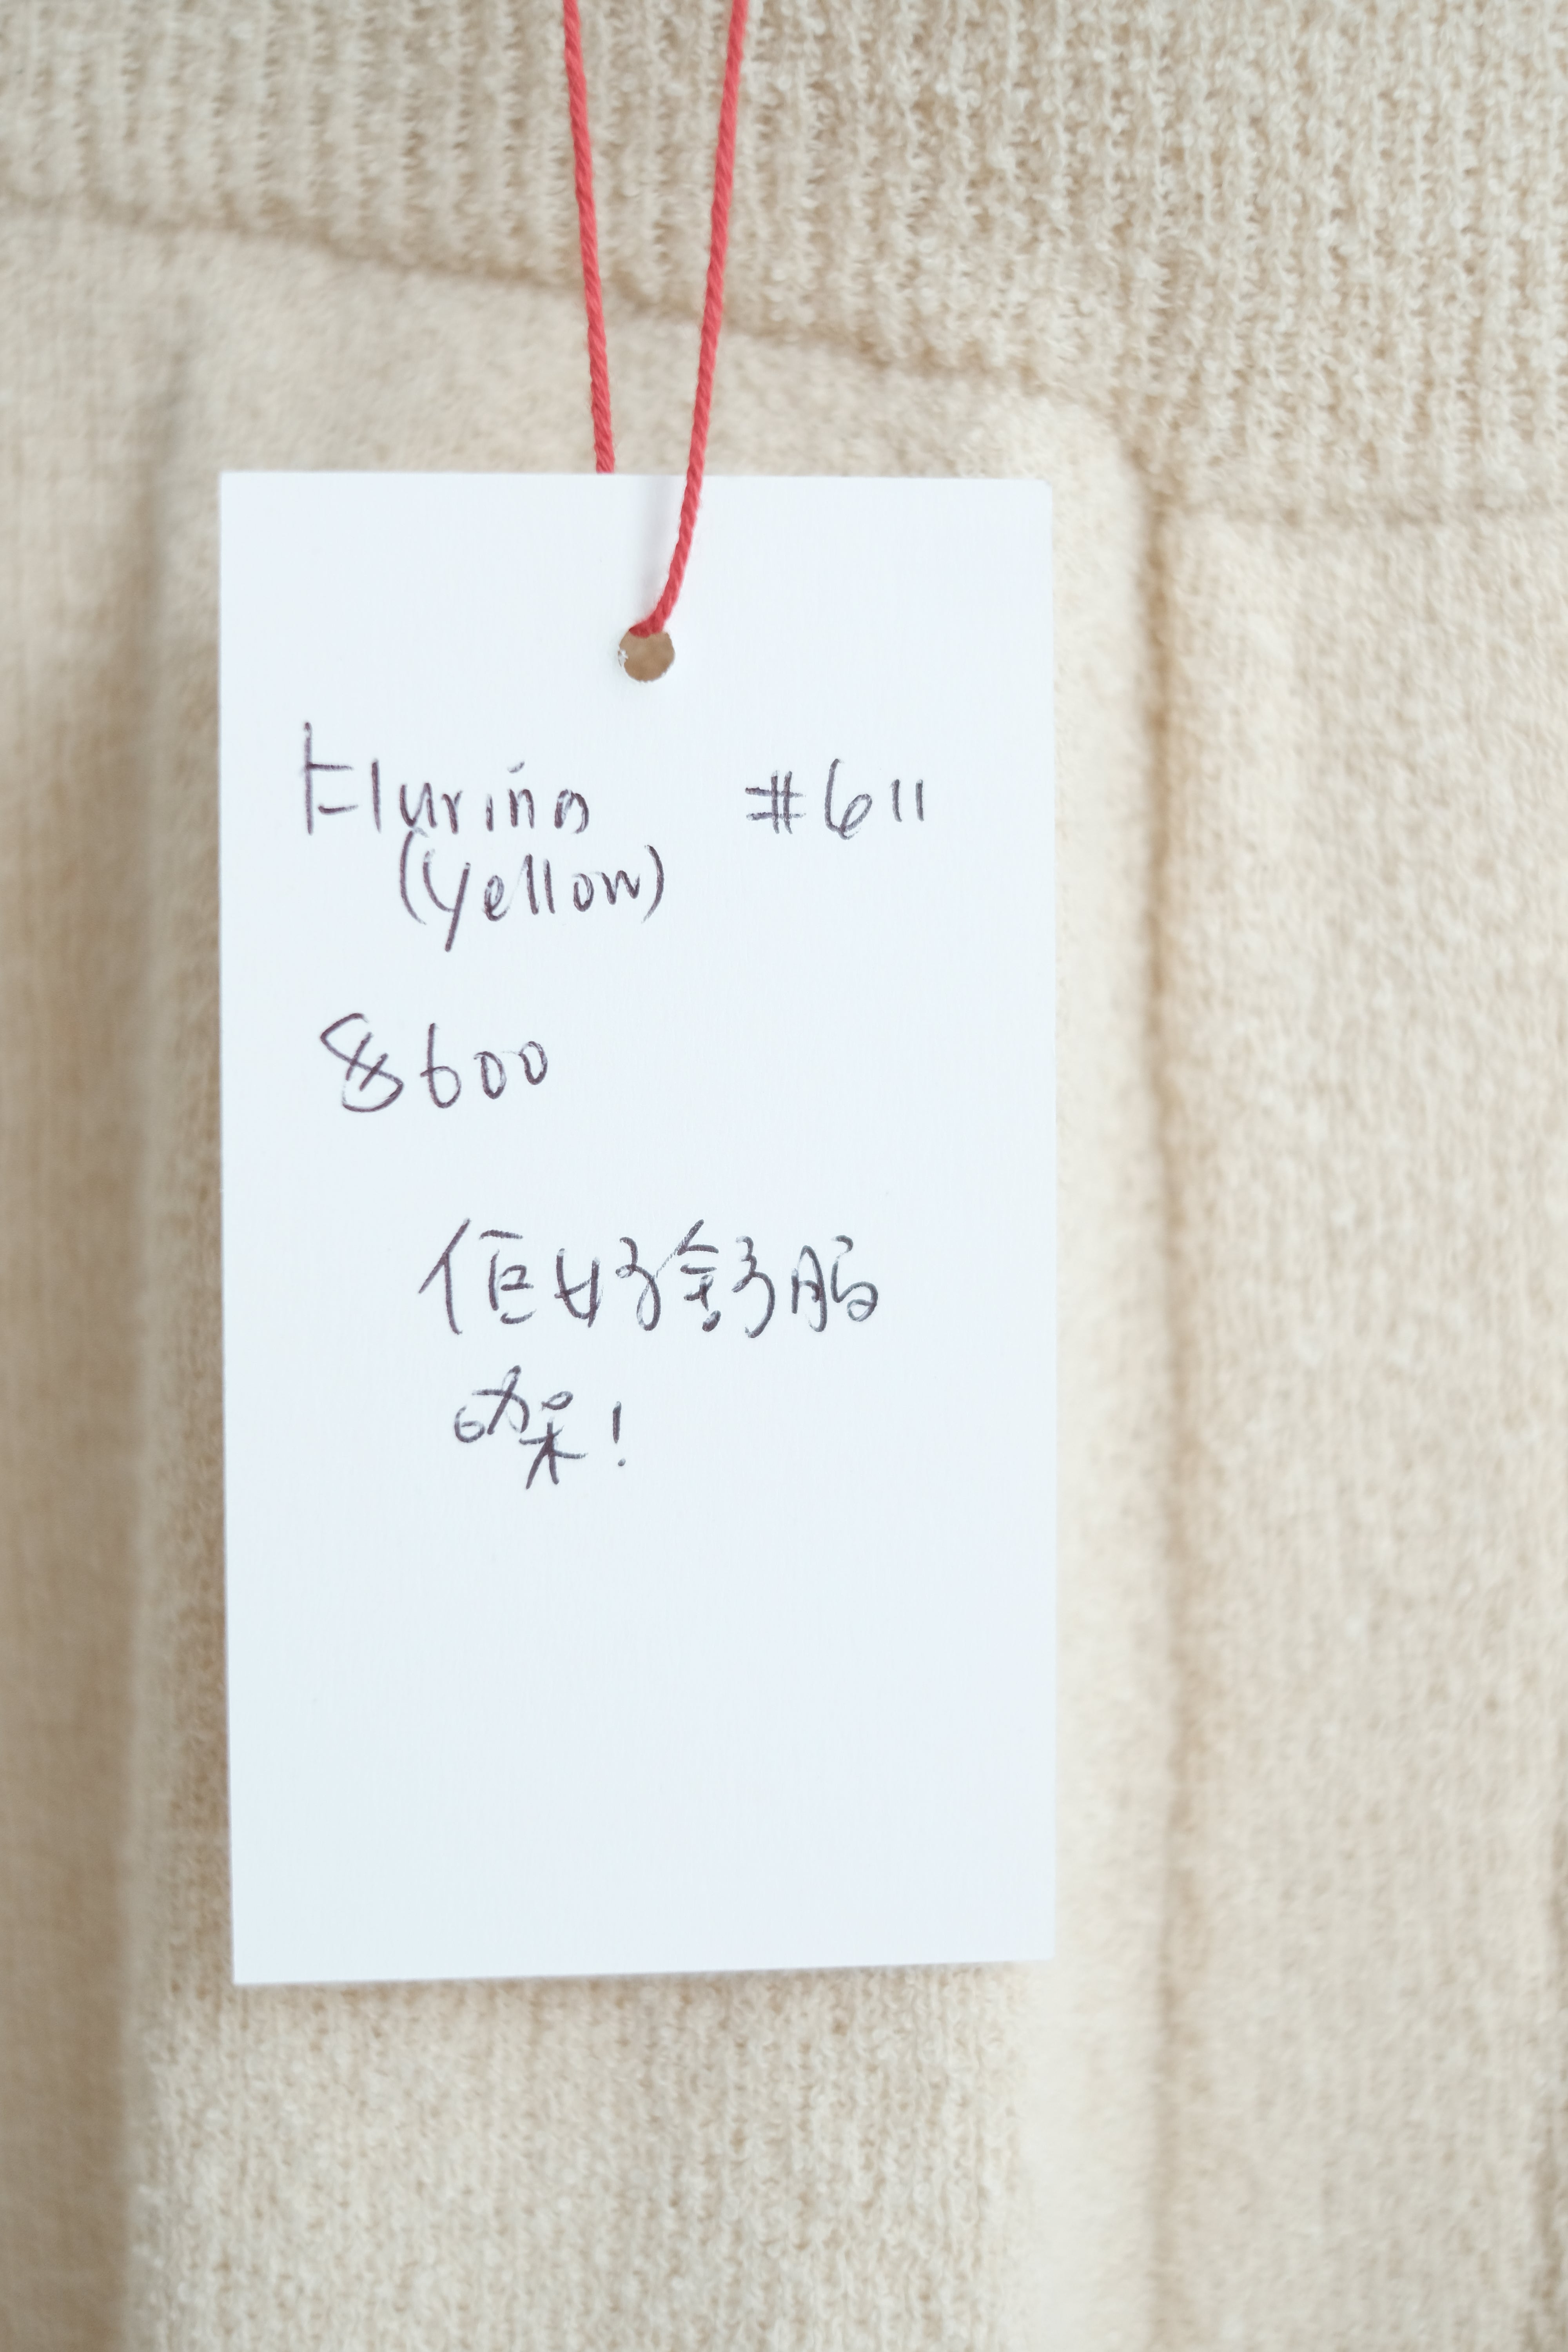 Flurina #611
(Yellow)
$600
但好舒服
㗎!